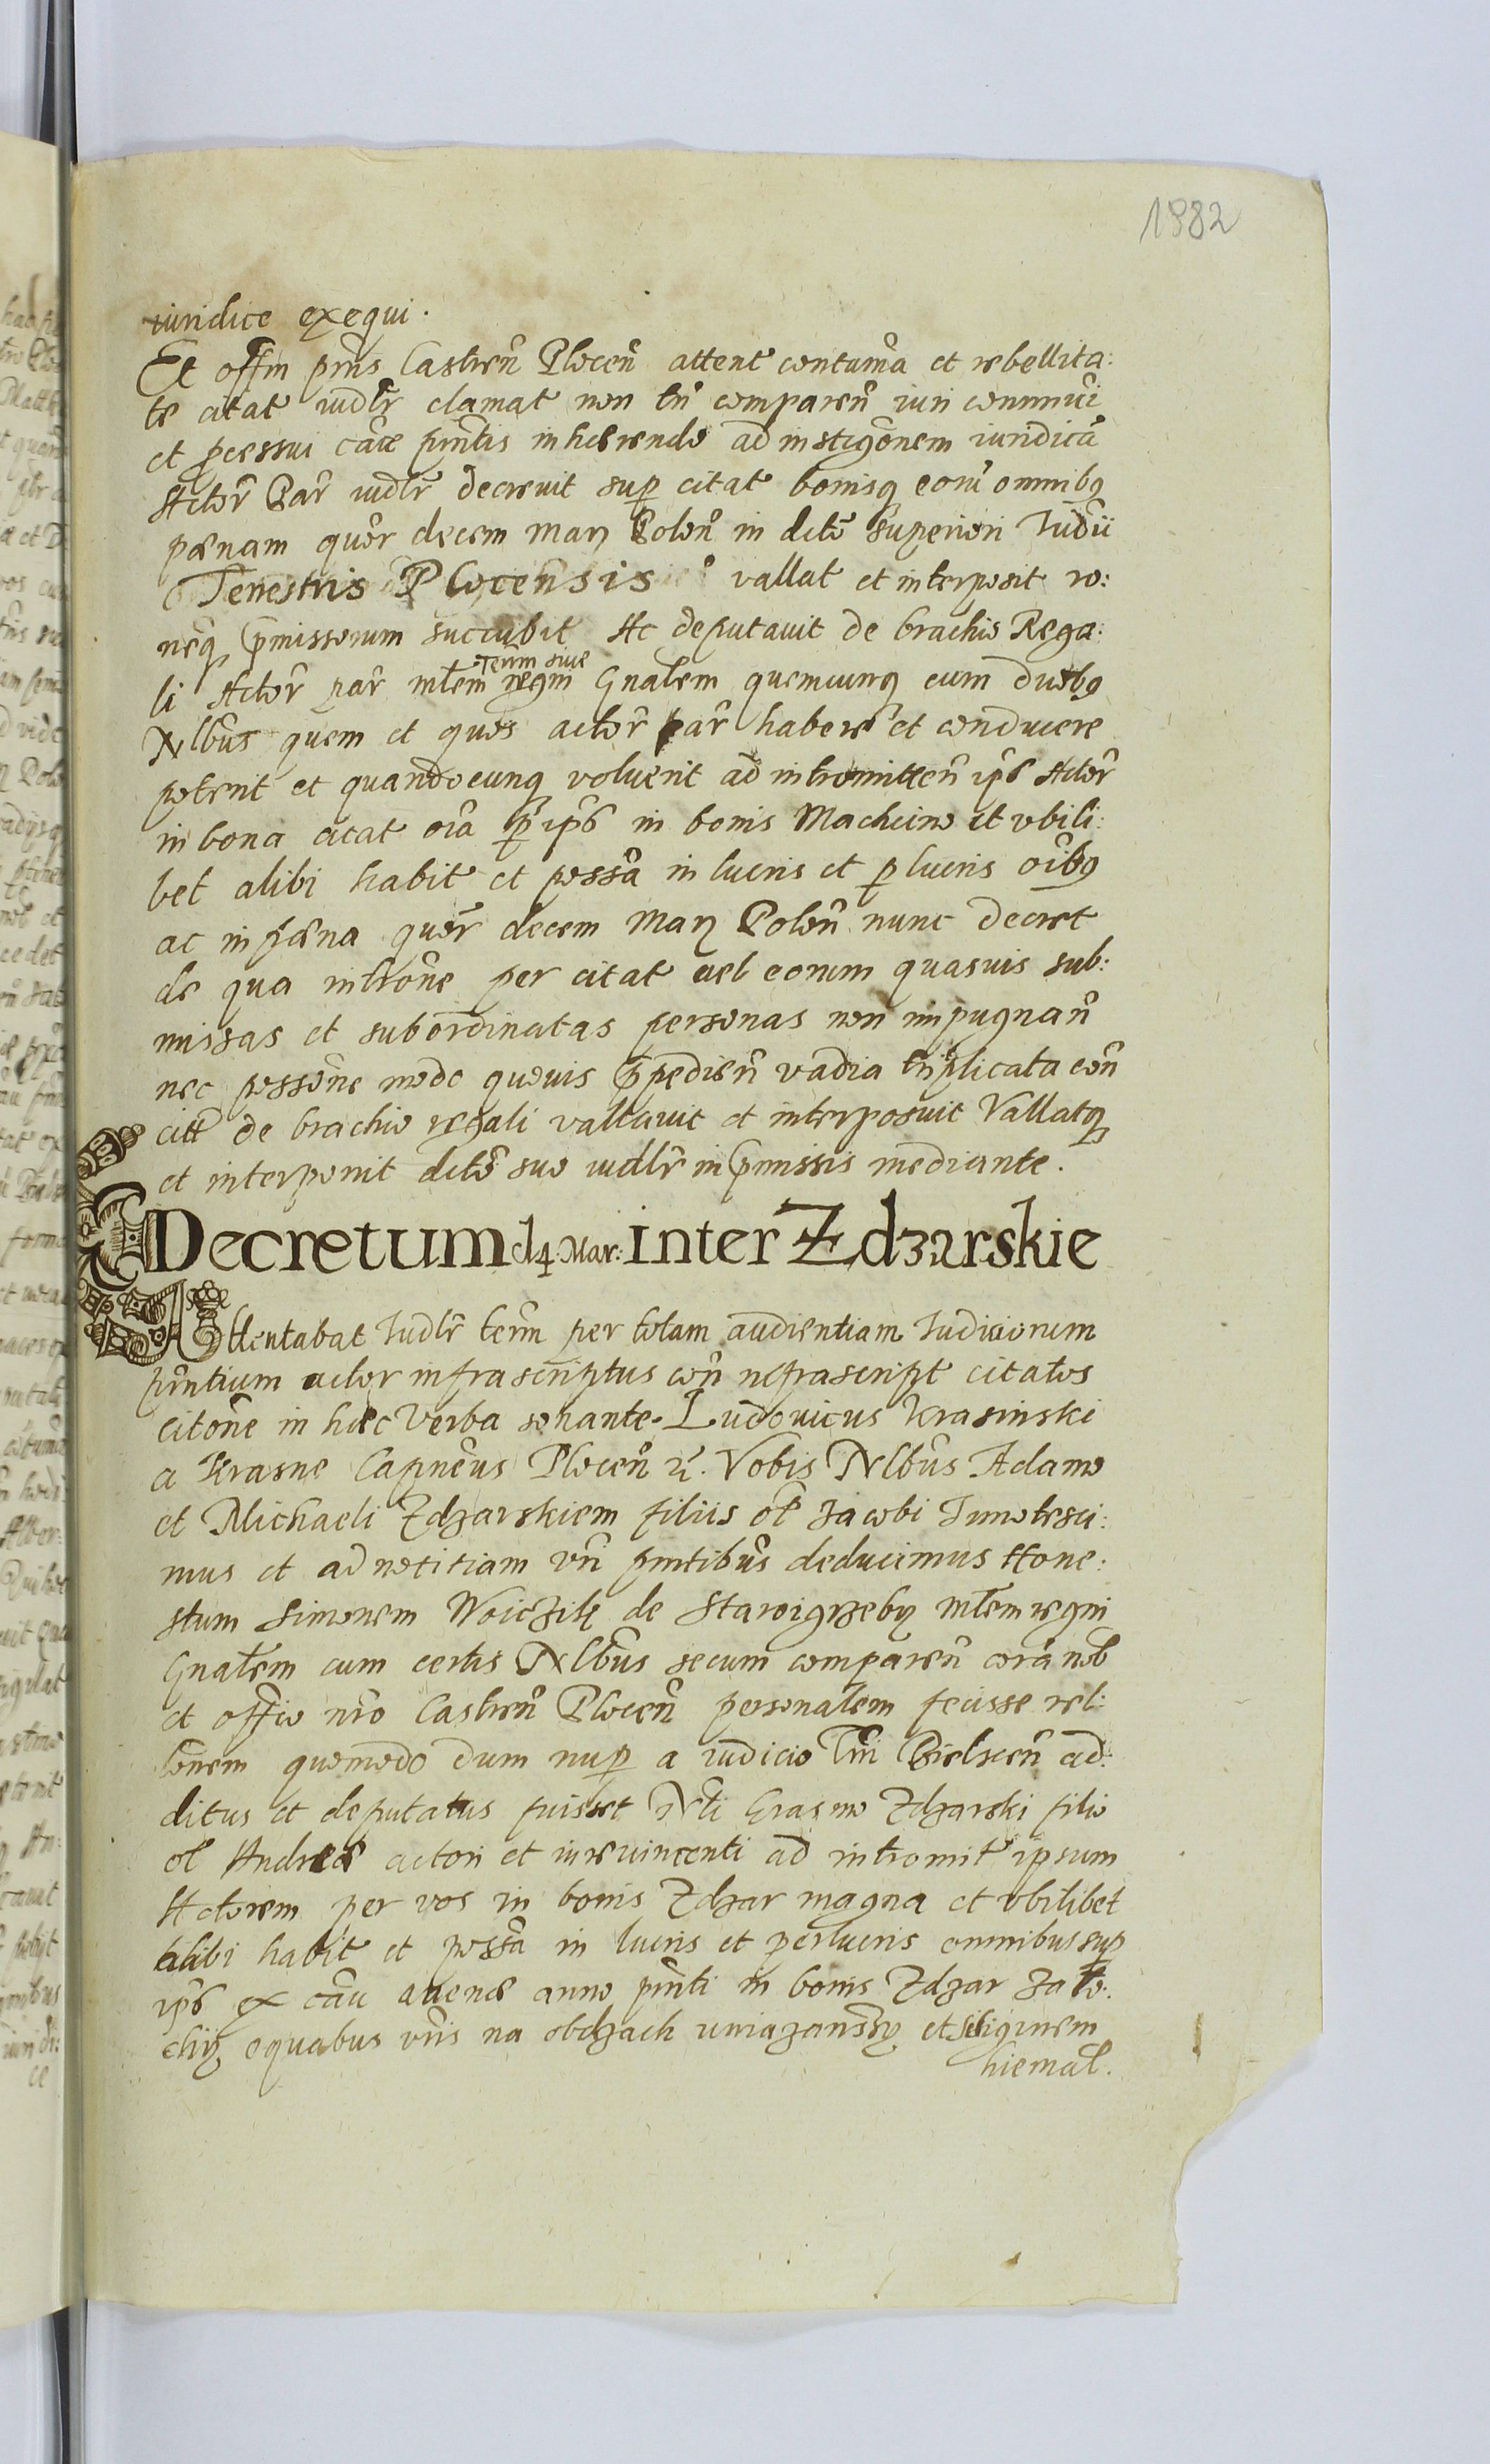 1982
iuridice exequi.
Et offm pñs Castreñ Plocen̄ attent contuma et rebellita:
te citat iudlr clamat non tñ compareñ iuri conmuni
et pcessui cãe pñtis inherendo ad instigõnem iuridicã
Actor Par iudlr decreuit sup citat bonisq eorũ omnibq
pænam quor decem Marz Polon in dcto superiori Iudii
Terrestris Plocensis vallat et interposit ro:
neq pmissorum succubit Ac deputauit de brachio Rega:
li Actor par mlem terrm siue regni Gnalem quemcunq cum duobq
Nlbus quem et quos actor par habere et conducere
poterit et quandocunq voluerit ad intromitten ips Actor
in bona citat oia p ips in bonis Machcino et vbili:
bet alibi habit et possa in lucris et plucris oibq
ac in pæna quor decem Marz Polon nunc decret
de qua introne per citat uel eorum quasuis sub:
missas et subordinatas personas non impugnan
nec possone modo quouis ppedien vadia triplicata con
citt de brachio regali vallauit et interposuit Vallatq
et interponit dcto suo iudlr in pmissis mediante.
Decretum d4 Mar: inter Zdzarskie
Attentabat Iudlr term per totam audientiam Iudiciorum
pntium actor infrascriptus con nfrascript citatos
citone in hæc verba sonante. Ludouicus Krasinski
a Krasne Capneus Plocen rc. Vobis Nlbus Adamo
et Michaeli Zdzarskiem filiis ol Jacobi Innotesci:
mus et ad notitiam vri pntibus deducimus Hone:
stum Simonem Woiczik de Staroigrzeby mlem regni
Gnalem cum certis Nlbus secum comparen cora nob
et officio nro Castren Plocen personalem fecisse rel:
lonem quomodo dum nup a iudicio Tri Bielscen ad:
ditus et deputatus fuisset Nli Erasmo Zdzarski filio
ol Andreæ actori et iure uincenti ad intromit ipsum
Actorem per vos in bonis Zdzar magna et vbilibet
alibi habit et possa in lucris et perlucris omnibus sup
ips ex cau auenæ anno pnti in bonis Zdzar Jato:
chij equabus vris na obdzach et siliginem
hiemal.